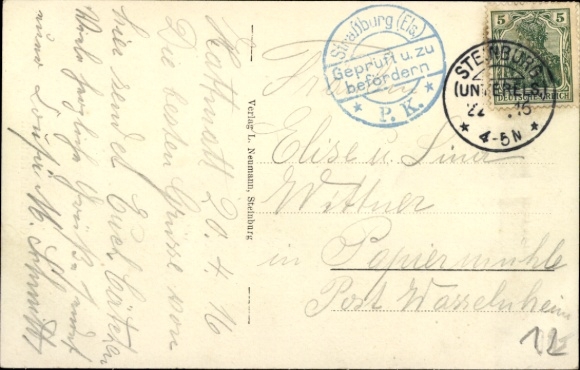 Hattmatt 20.4.16
Die besten Grüsse von
hier sendet Euch
Viele herzliche Grüße
M. Schmitt
Verlag L. Neumann, Steinburg
Straßburg (Els.)
Geprüft u. zu
befördern
* P. K. *
5 5
DEUTSCHES REICH
STEINBURG
(UNTERELS.)
22
* 4-5N *
Elise u. Lina
Wittner
in Papiermühle
Post Wasselnheim
12